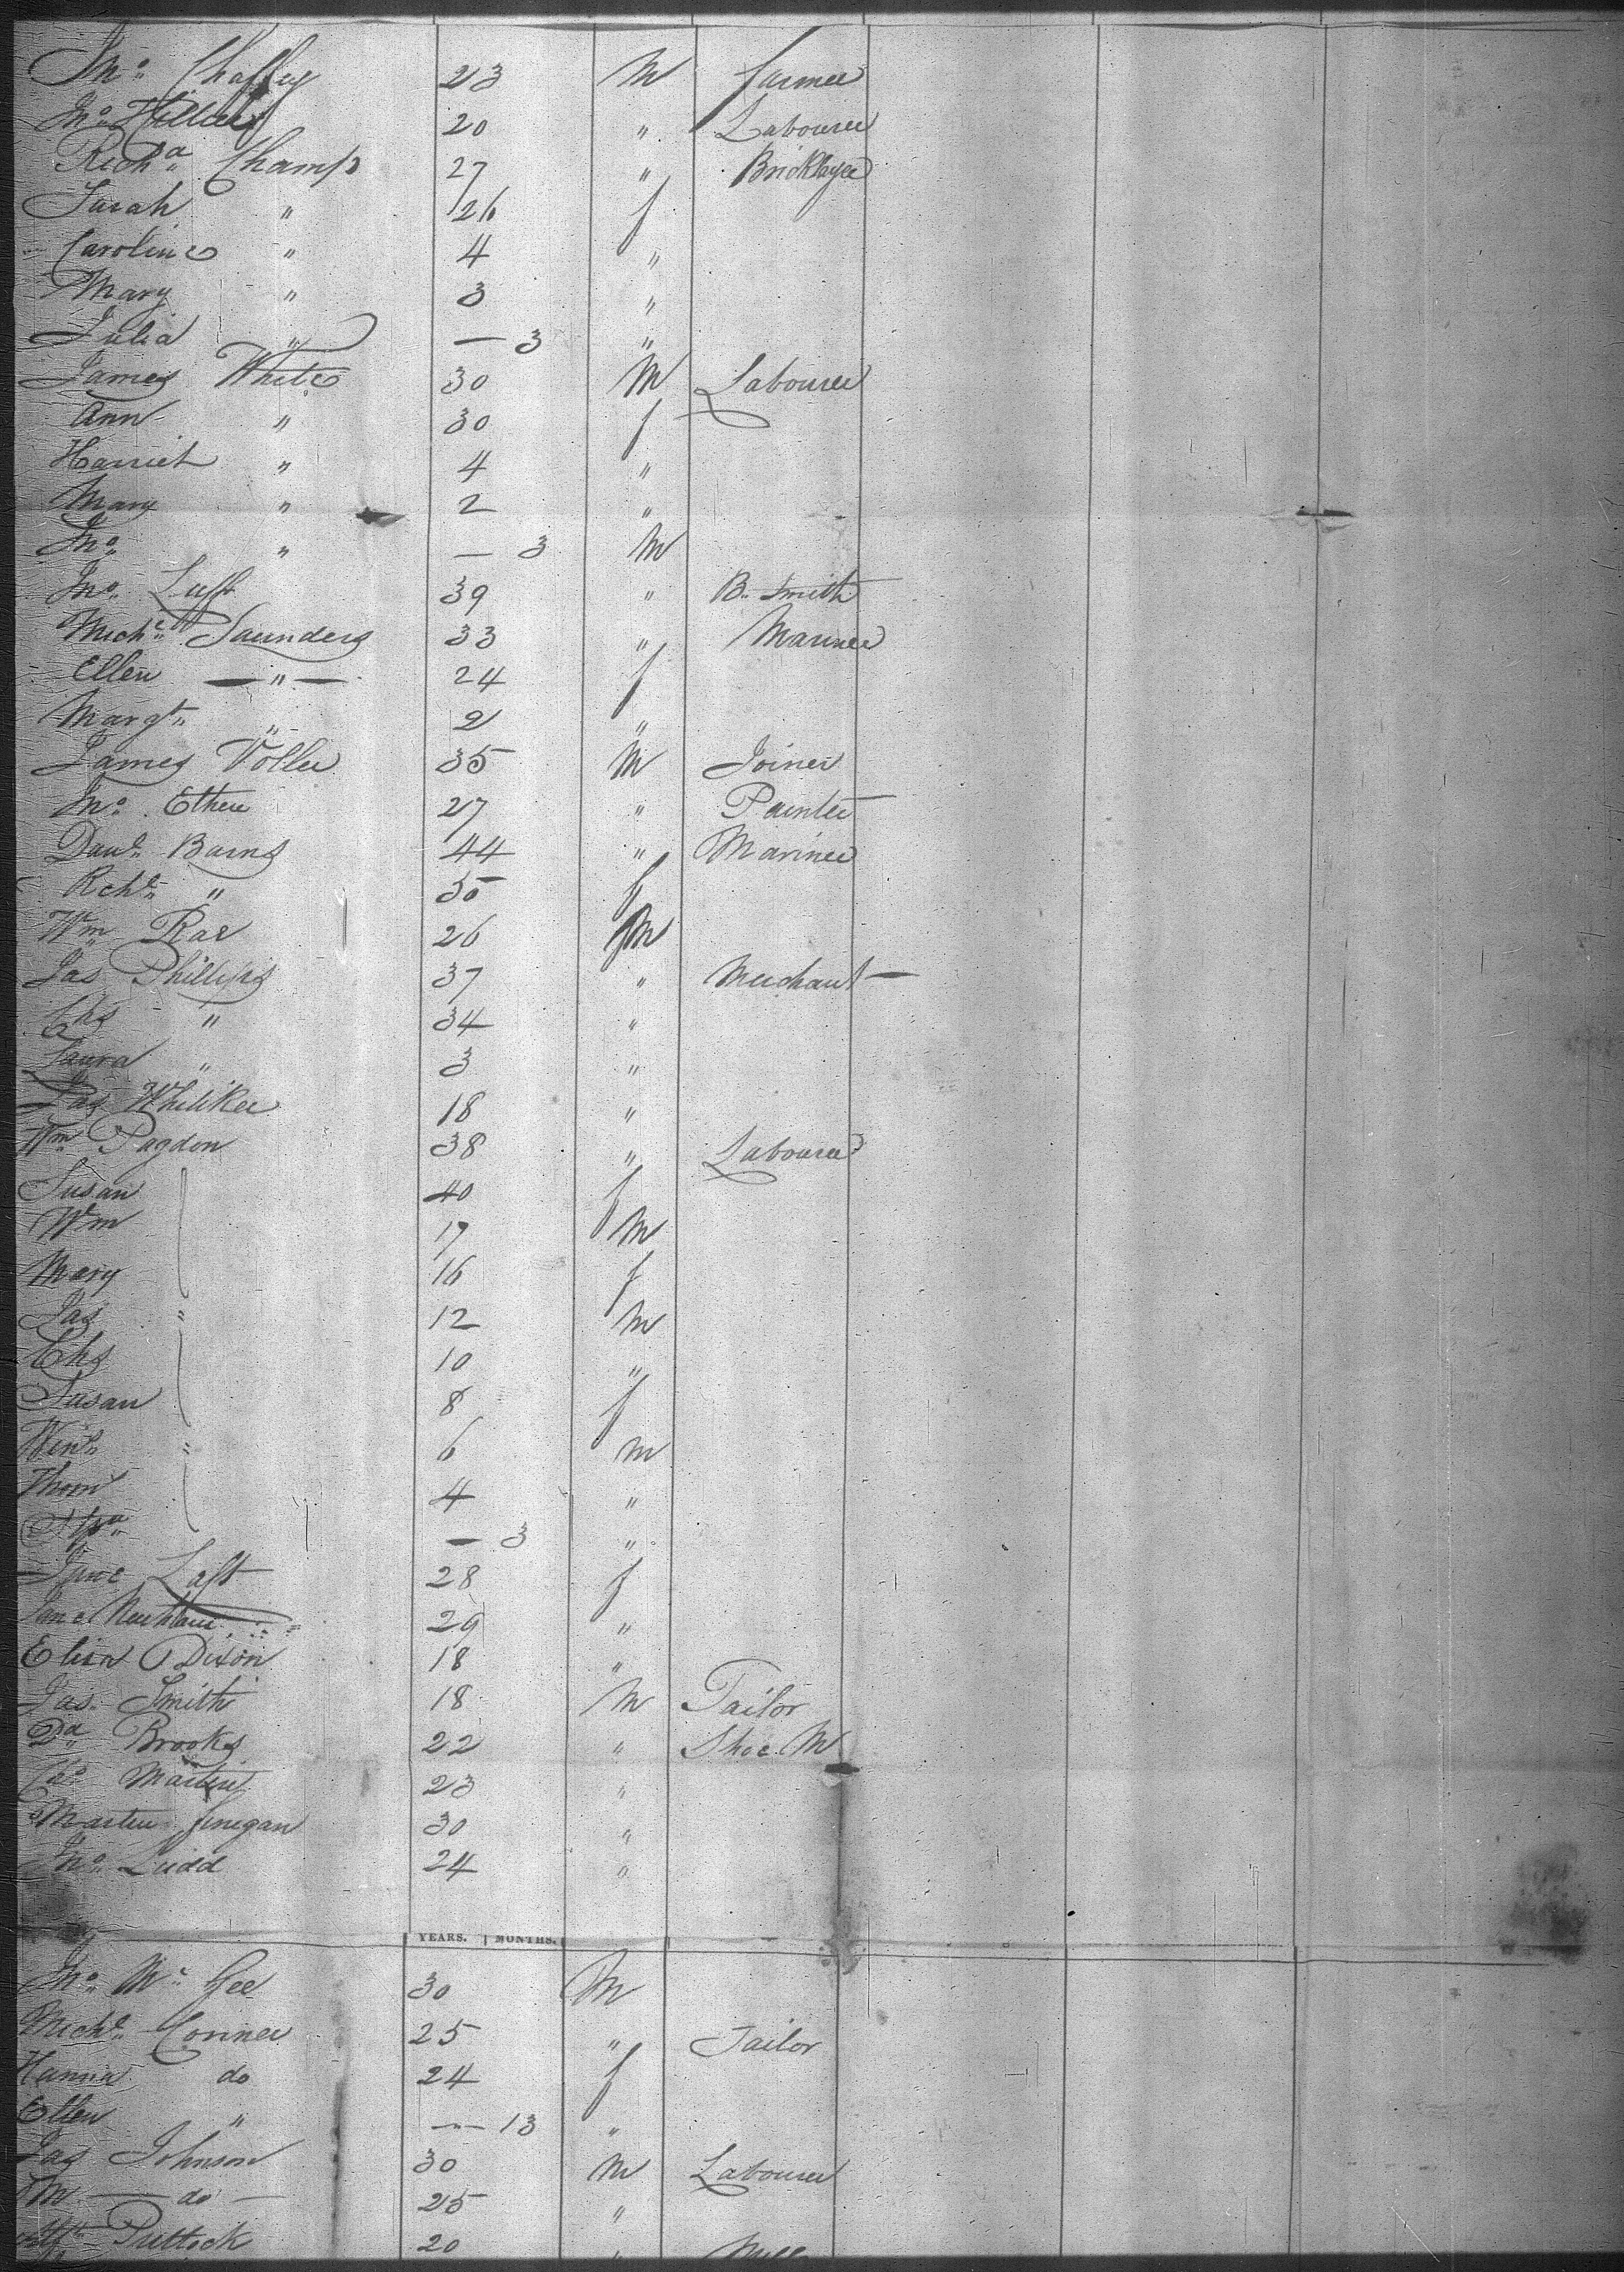 Jno. Chaffey 23 M farmer
Jno. 20 " Labourer
Richd. Champ 27 " Bricklayer
Sarah " 26 f
Caroline " 4 "
Mary " 3 "
Julia " — 3 "
James White 30 M Labourer
Ann " 30 f
Harriet " 4 "
Mary " 2 "
Jno. " — 3 M
Jno. Luff 39 " B. Smith
Michl. Saunders 33 " Mariner
Ellen — " — 24 f
Margt. " 2 "
James Voller 35 M Joiner
Jno. 27 " Painter
Danl. Barns 44 " Mariner
Rchl. " 35 f
Wm. Rae 26 M
Jas Phillips 37 " Merchant
Chs " 34 "
Laura " 3 "
Jas 18 "
Wm. Pagdon 38 " Labourer
Susan 40 f
Wm 17 M
Mary 16 f
Jas " 12 M
Chs 10 "
Susan 8 f
" 6 M
Thom 4 "
— 3 "
Jane Laft 28 f
Jane 29 "
Eliza Dixon 18 "
Jas. Smith 18 M Tailor
Dd. Brooks 22 " Shoe M
Martin 23 "
Martin finegan 30 "
Jno. Ludd 24 "
YEARS. MONTHS.
Jno. Mc. Gee 30 M
Michl. Conner 25 " Tailor
Hanna do 24 f
Ellen " — 13 "
Jas Johnson 30 M Labourer
M — do — 25 "
Puttock 20 "